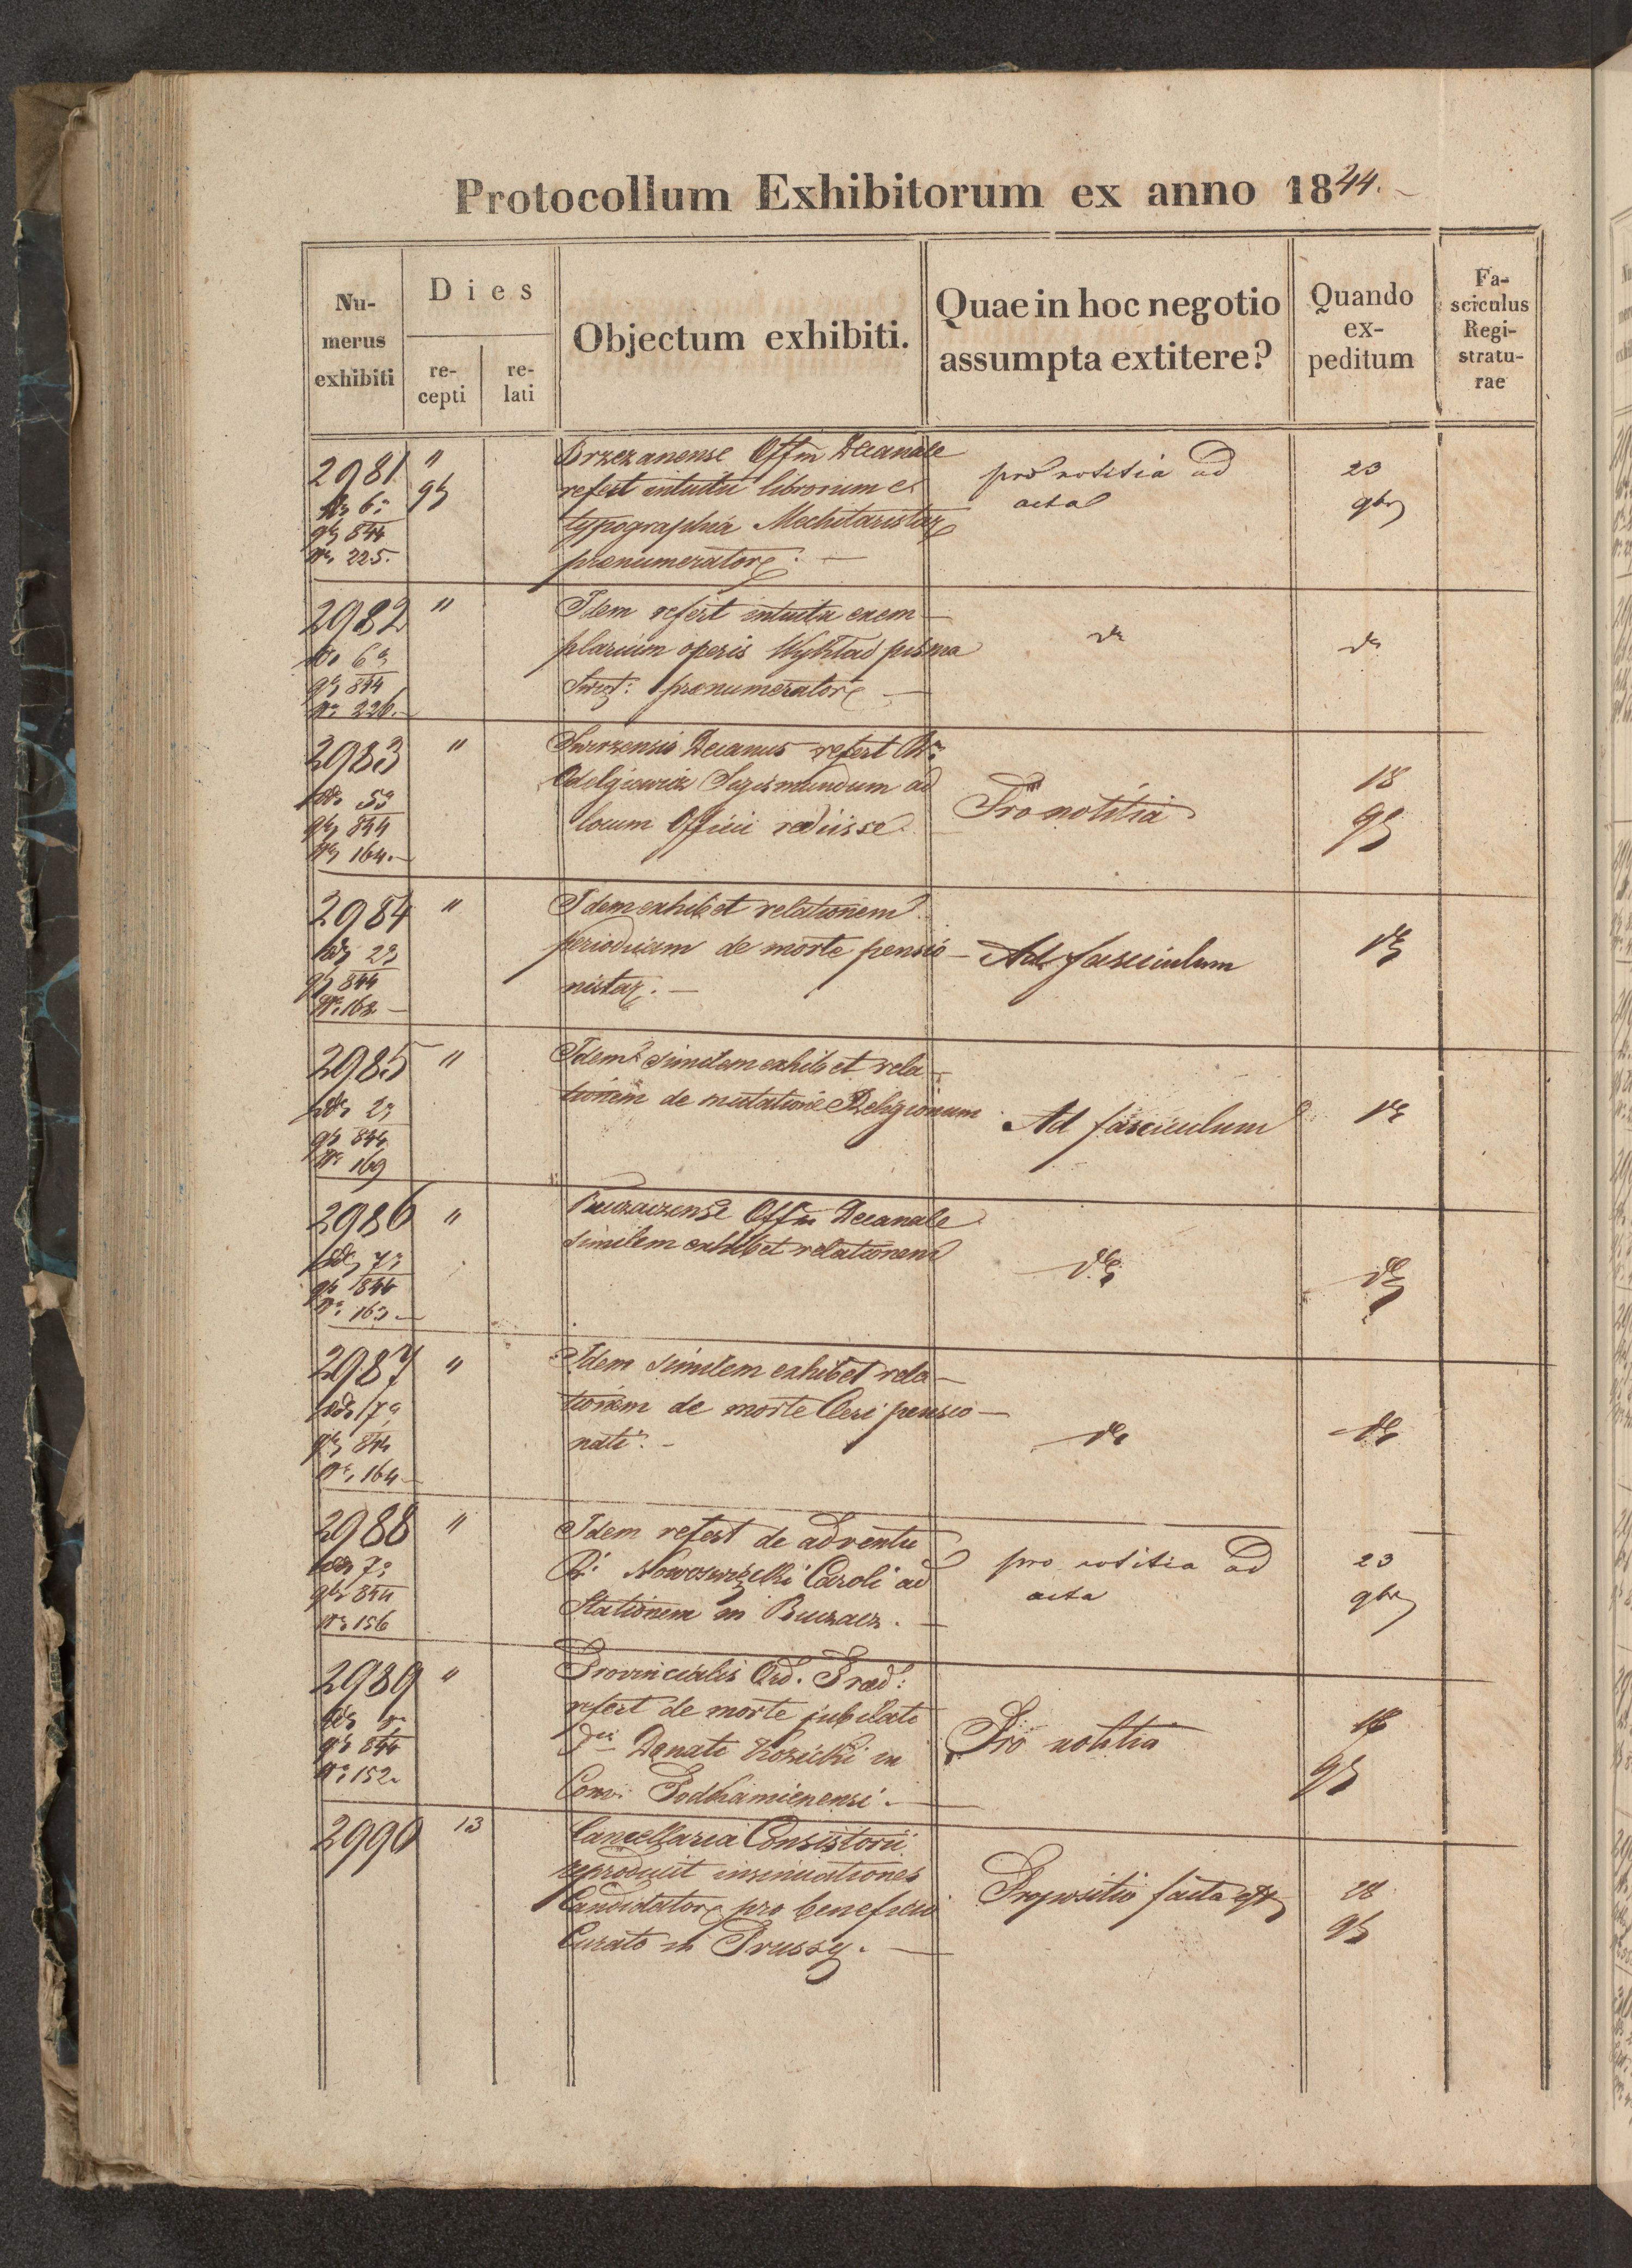 Protocollum Exhibitorum ex anno 1844.
Nu-
merus
exhibiti
Dies
re-
cepti
re-
lati
Objectum exhibiti.
Quae in hoc negotio
assumpta extitere?
Quando
ex-
peditum
Fa-
sciculus
Regi-
stratu-
rae
2981 "
6
844
225.
Brzezanense Offm Decanale
refert intuitu librorum e
typographia Mechitaristar
praenumerator. —
pro notitia ad
acta
23
9br
2982 "
6
844
226. —
Idem refert intuitu exem-
plarium operis Wykład pisma
Swięt: praenumerator —
do
do
2983 "
5
844
164. —
Swirzensis Decanus refert
Sigismundum ad
locum Officii rediisse
Pro notitia
18
9b
2984 "
2
844
168 —
Idem exhibet relationem
periodicam de morte pensio-
nistar. —
Ad fasciculum
do
2985 "
2
844
169
Idem similem exhibet rela-
tionem de mutatione Religionum
Ad fasciculum
do
2986 "
7
844
163 —
Buczaczense Offm Decanale
similem exhibet relationem
do
do
2987 "
7
844
164 —
Idem similem exhibet rela-
tionem de morte Cleri pensio-
nati. —
do
do
2988 "
7
844
156
Idem refert de adventu
Caroli ad
Stationem in Buczacz. —
pro notitia ad
acta
23
9br
2989 "
844
152.
Provincialis Ord. Praed:
refert de morte jubilati
Donati Kozicki in
Conv: Podkamienensi. —
Pro notitia
18
9b
2990 13
Cancellaria Consistorii
reproducit insinuationes
Candidator pro beneficio
Curato in Prussy. —
Propositio facta est
28
9b